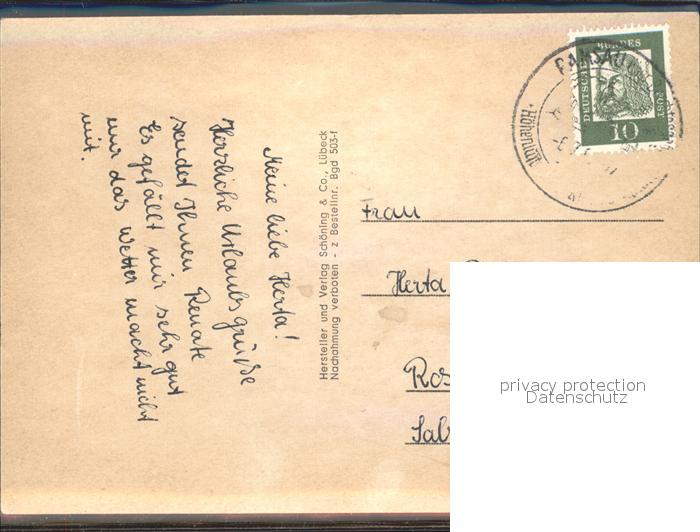 Meine liebe Herta!
Herzliche Urlaubsgrüße
sendet Ihnen Renate
Es gefällt mir sehr gut
nur das Wetter macht nicht
mit.
Hersteller und Verlag Schöning & Co., Lübeck
Nachahmung verboten - z Bestellnr. Bgd 503-f
DEUTSCHE
BUNDES
POST
10
RAMSAU
Höhenluft
Frau
Herta
Ros
Salz
privacy protection
Datenschutz